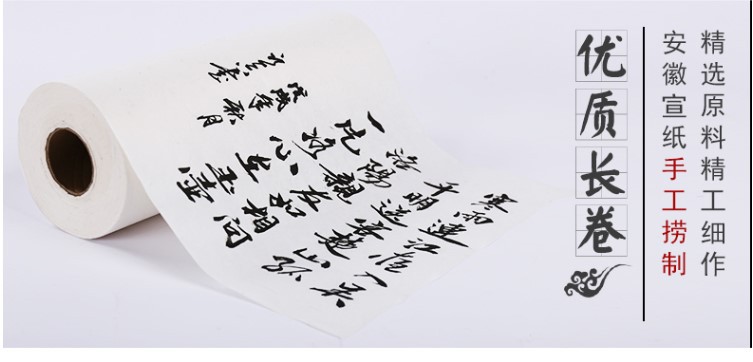 精选原料精工细作
安徽宣纸手工捞制
优质长卷
寒雨連江夜入吴
平明送客楚山孤
洛陽親友如相問
一片冰心在玉壺
秋月